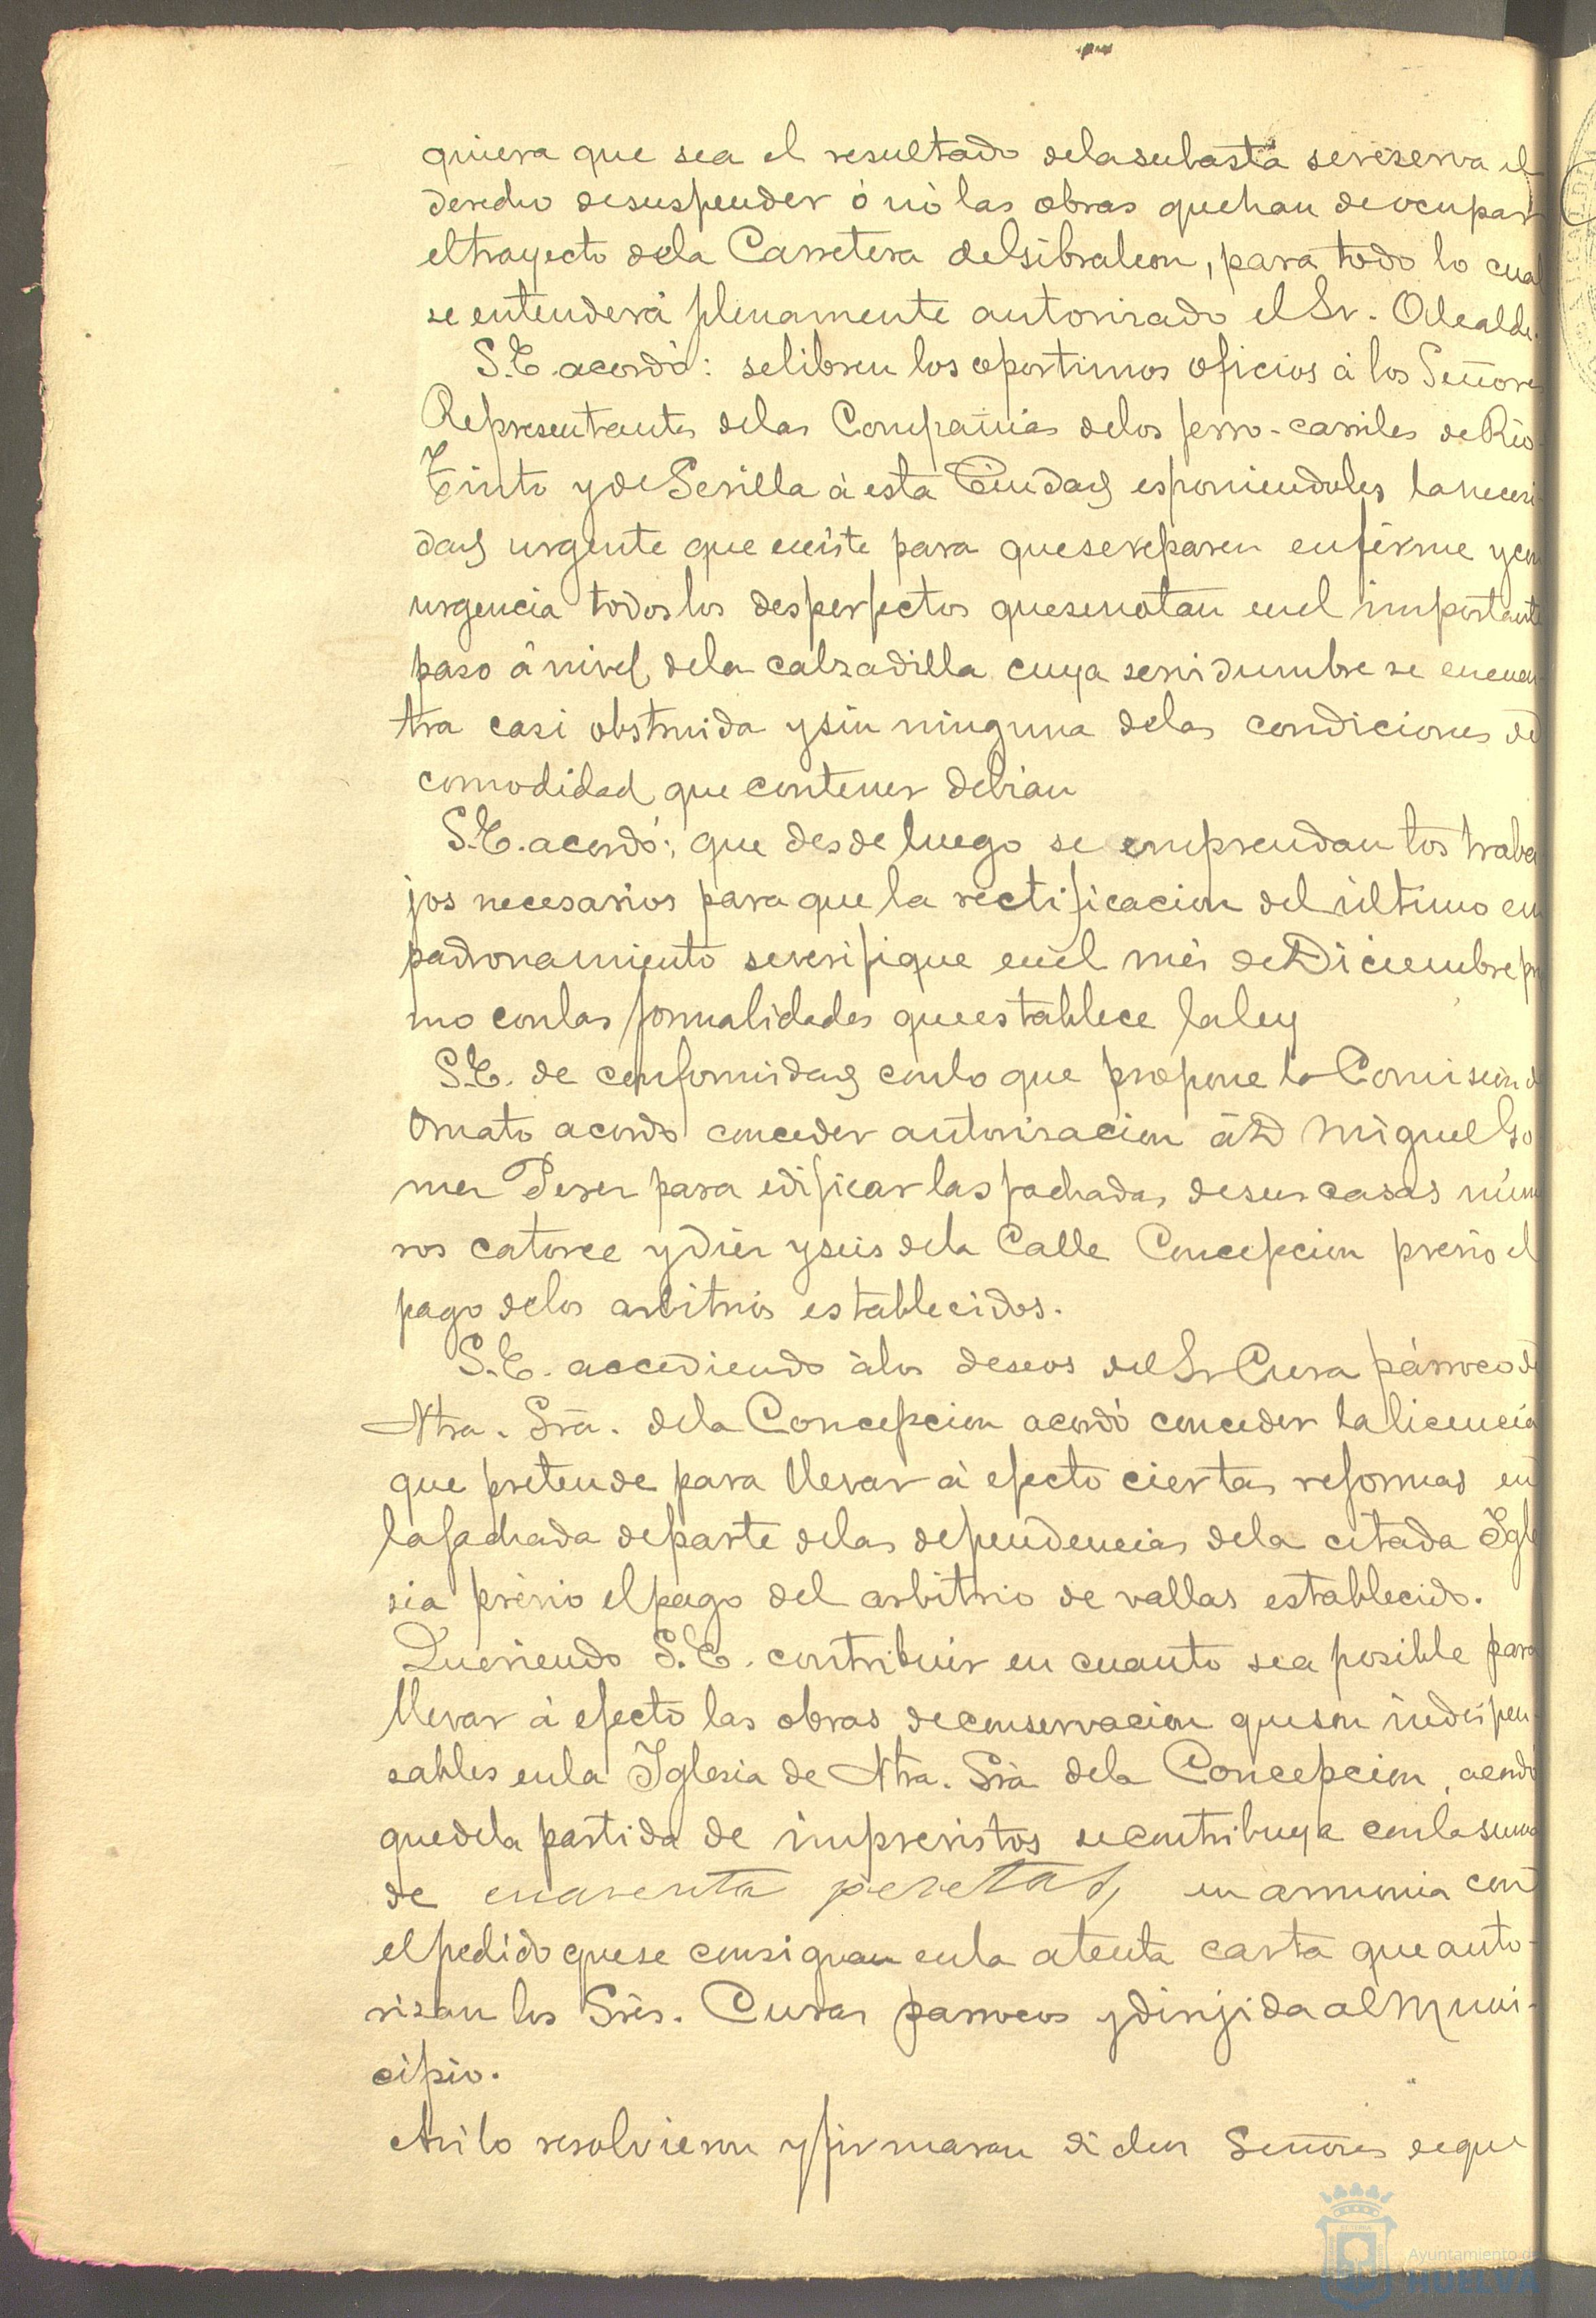 quiera que sea el resultado de la subasta se reserva el
derecho de suspender ó nó las obras que han de ocupar
el trayecto de la Carretera de Gibraleon, para todo lo cual
se entenderá plenamente autorizado el Sr. Alcalde.
S.E. acordó: se libren los oportunos oficios á los Señores
Representantes de las Compañias de los ferro-carriles de Rio-
Tinto y de Sevilla á esta Ciudad esponiendoles la necesi-
dad urgente que existe para que se reparen en firme y con
urgencia todos los desperfectos que se notan en el importante
paso á nivel de la calzadilla cuya servidumbre se encuen-
tra casi obstruida y sin ninguna de las condiciones de
comodidad que contener debian
S.E. acordó: que desde luego se emprendan los traba-
jos necesarios para que la rectificacion del último em
padronamiento se verifique en el més de Diciembre pr
mo con las formalidades que establece la ley
S.E. de conformidad con lo que propone la Comision d
Ornato acordo conceder autorizacion á D Miguel Go
mez Perez para edificar las fachadas de sus casas núme
ros catorce y diez y seis de la Calle Concepcion previo el
pago de los arbitrios establecidos.
S.E. accediendo á los deseos del Sr Cura párroco de
Ntra. Sra. de la Concepcion acordó conceder la licencia
que pretende para llevar á efecto ciertas reformas en
la fachada de parte de las dependencias de la citada Igle
sia prévio el pago del arbitrio de vallas establecido.
Queriendo S.E. contribuir en cuanto sea posible para
llevar á efecto las obras de conservacion que son indispen-
sables en la Iglesia de Ntra. Sra de la Concepcion, acordó
que de la partida de imprevistos se contribuya con la suma
de cuarenta pesetas, en armonia con
el pedido que se consignan en la atenta carta que auto-
rizan los Sres. Curas parrocos y dirijida al Muni-
cipio.
Asi lo resolvieron y firmaran dichos Señores de que
Ayuntamiento de
HUELVA